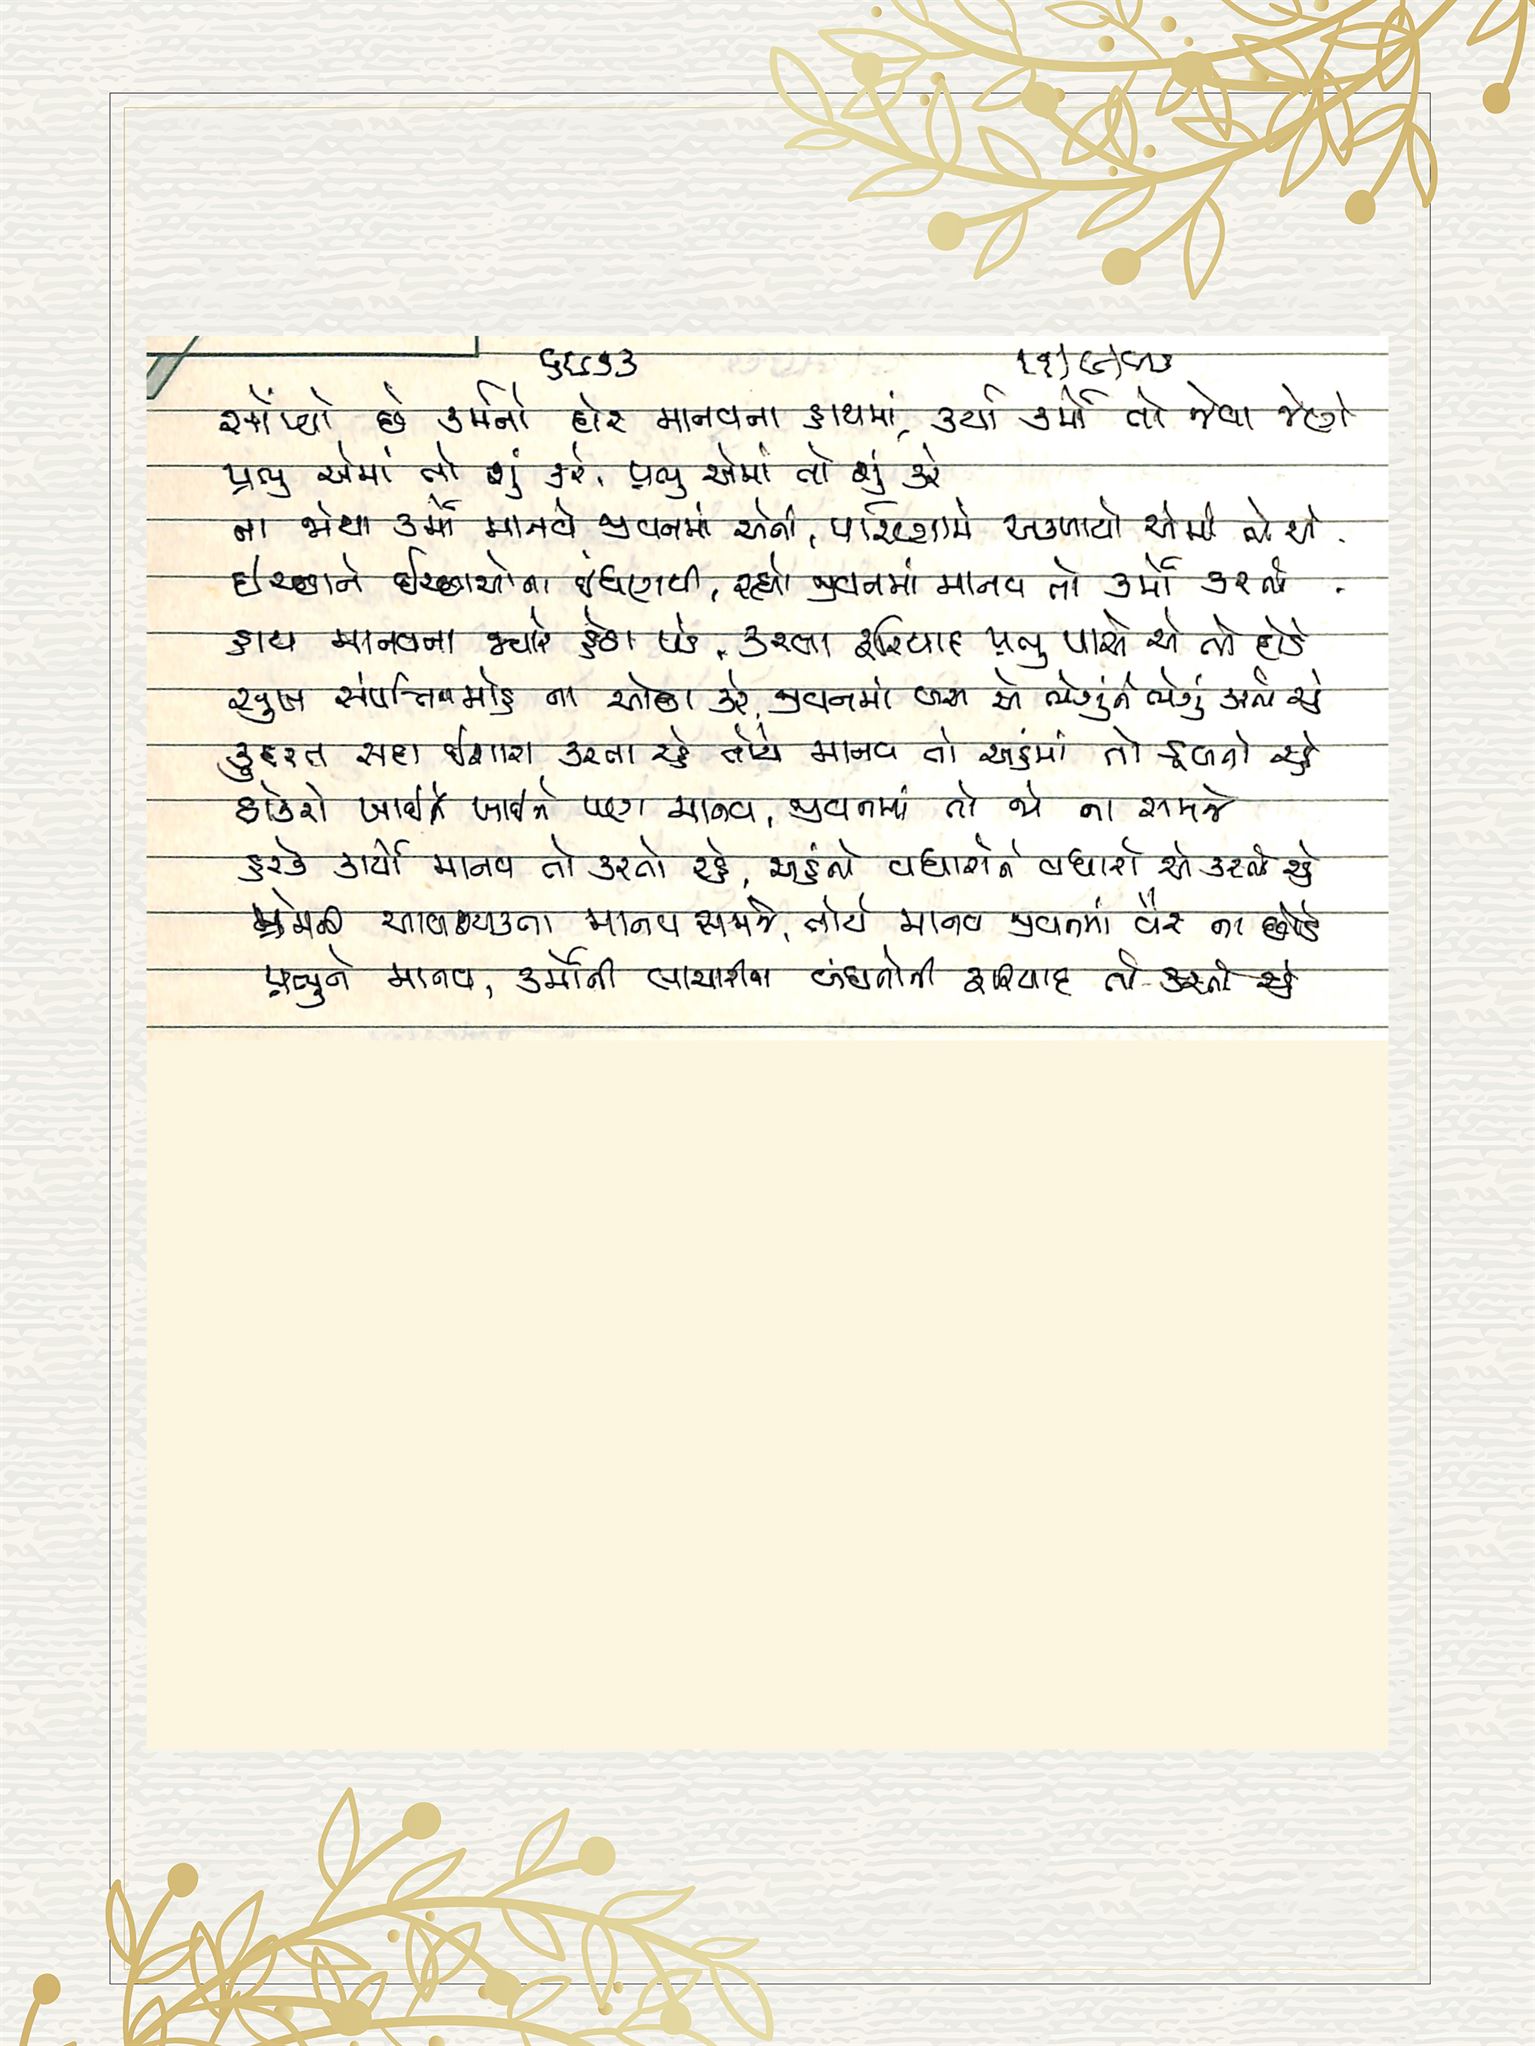 સોંપ્યો છે કર્મનો દોર માનવના હાથમાં, કર્યા કર્મો તો જેવા જેણે
પ્રભુ એમાં તો શું કરે, પ્રભુ એમાં તો શું કરે
ના જોયા કર્મો માનવે જીવનમાં એની, પરિણામે અકળાયો એમાં એ
ઇચ્છાને ઇચ્છાઓના બંધણથી, રહ્યો જીવનમાં માનવ તો કર્મો કરતો
હાથ માનવના જ્યારે હેઠા પડે, કરવા ફરિયાદ પ્રભુ પાસે એ તો દોડે
સુખ સંપત્તિ મોહ ના ઓછા કરે, જીવનમાં બસ એ ભેગુંને ભેગું કરતો રહે
કુદરત સદા ઇશારા કરતા રહે તોયે માનવ તો અહંમાં તો ડૂબતો રહે
ઠોકરો ખાઈને ખાઈને પણ માનવ, જીવનમાં તો જો ના સમજે
હરકે કાર્યો માનવ તો કરતો રહે, અહંનો વધારોને વધારો એ કરતો રહે
પ્રેમની આવશ્યકતા માનવ સમજે, તોયે માનવ જીવનમાં વૈર ના છોડે
પ્રભુને માનવ, કર્મોની લાચારીના બંધનોની ફરિયાદ તો કરતો રહે